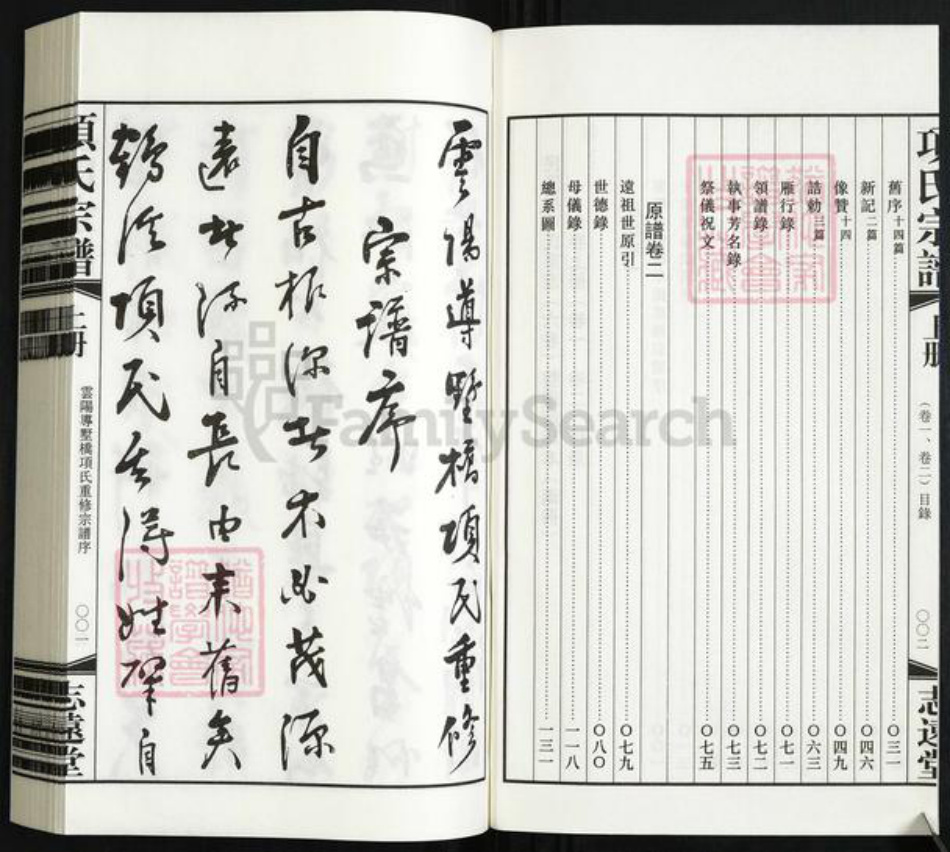 項氏宗譜
上册
（卷一、卷二）目錄
〇〇二
志遠堂
舊序十四篇……〇三一
新記二篇……〇四六
像贊十四……〇四九
誥勅三篇……〇六三
雁行錄……〇七一
領譜錄……〇七二
執事芳名錄……〇七三
祭儀祝文……〇七五
原譜卷二
遠祖世原引……〇七九
世德錄……〇八〇
母儀錄……一一八
總系圖……一三一
雲陽導墅橋項氏重修
宗譜序
自古根深者木必茂源
遠者流自長由来舊矣
鶴溪項氏其得姓肇自
項氏宗譜
上册
雲陽導墅橋項氏重修宗譜序
〇〇一
志遠堂
FamilySearch